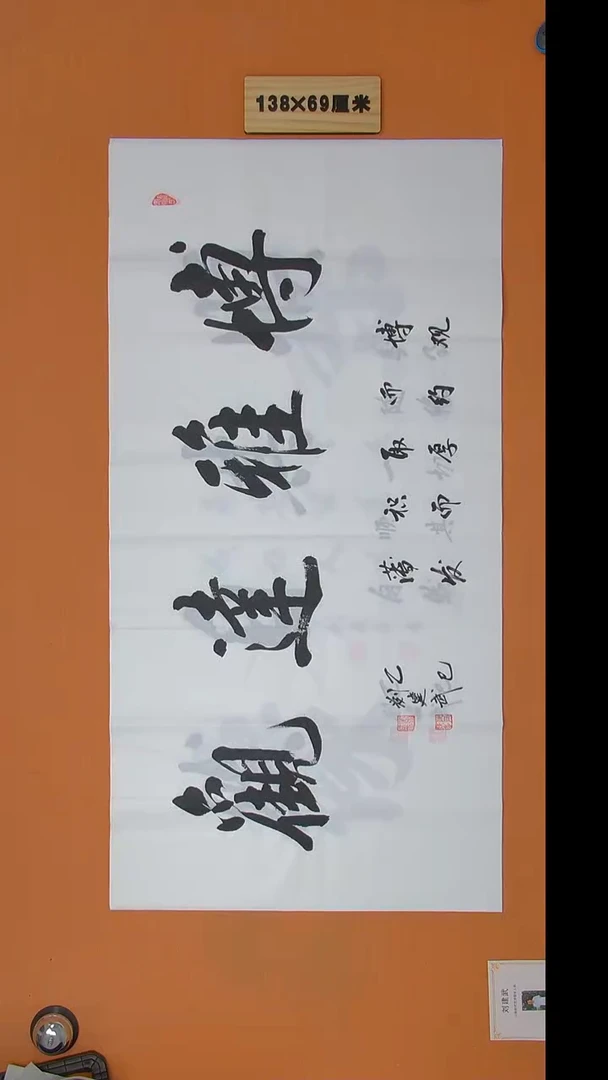 138×69厘米
博雅達觀
博观
而约
取厚
积而
薄发
乙巳
劉建武
刘建武